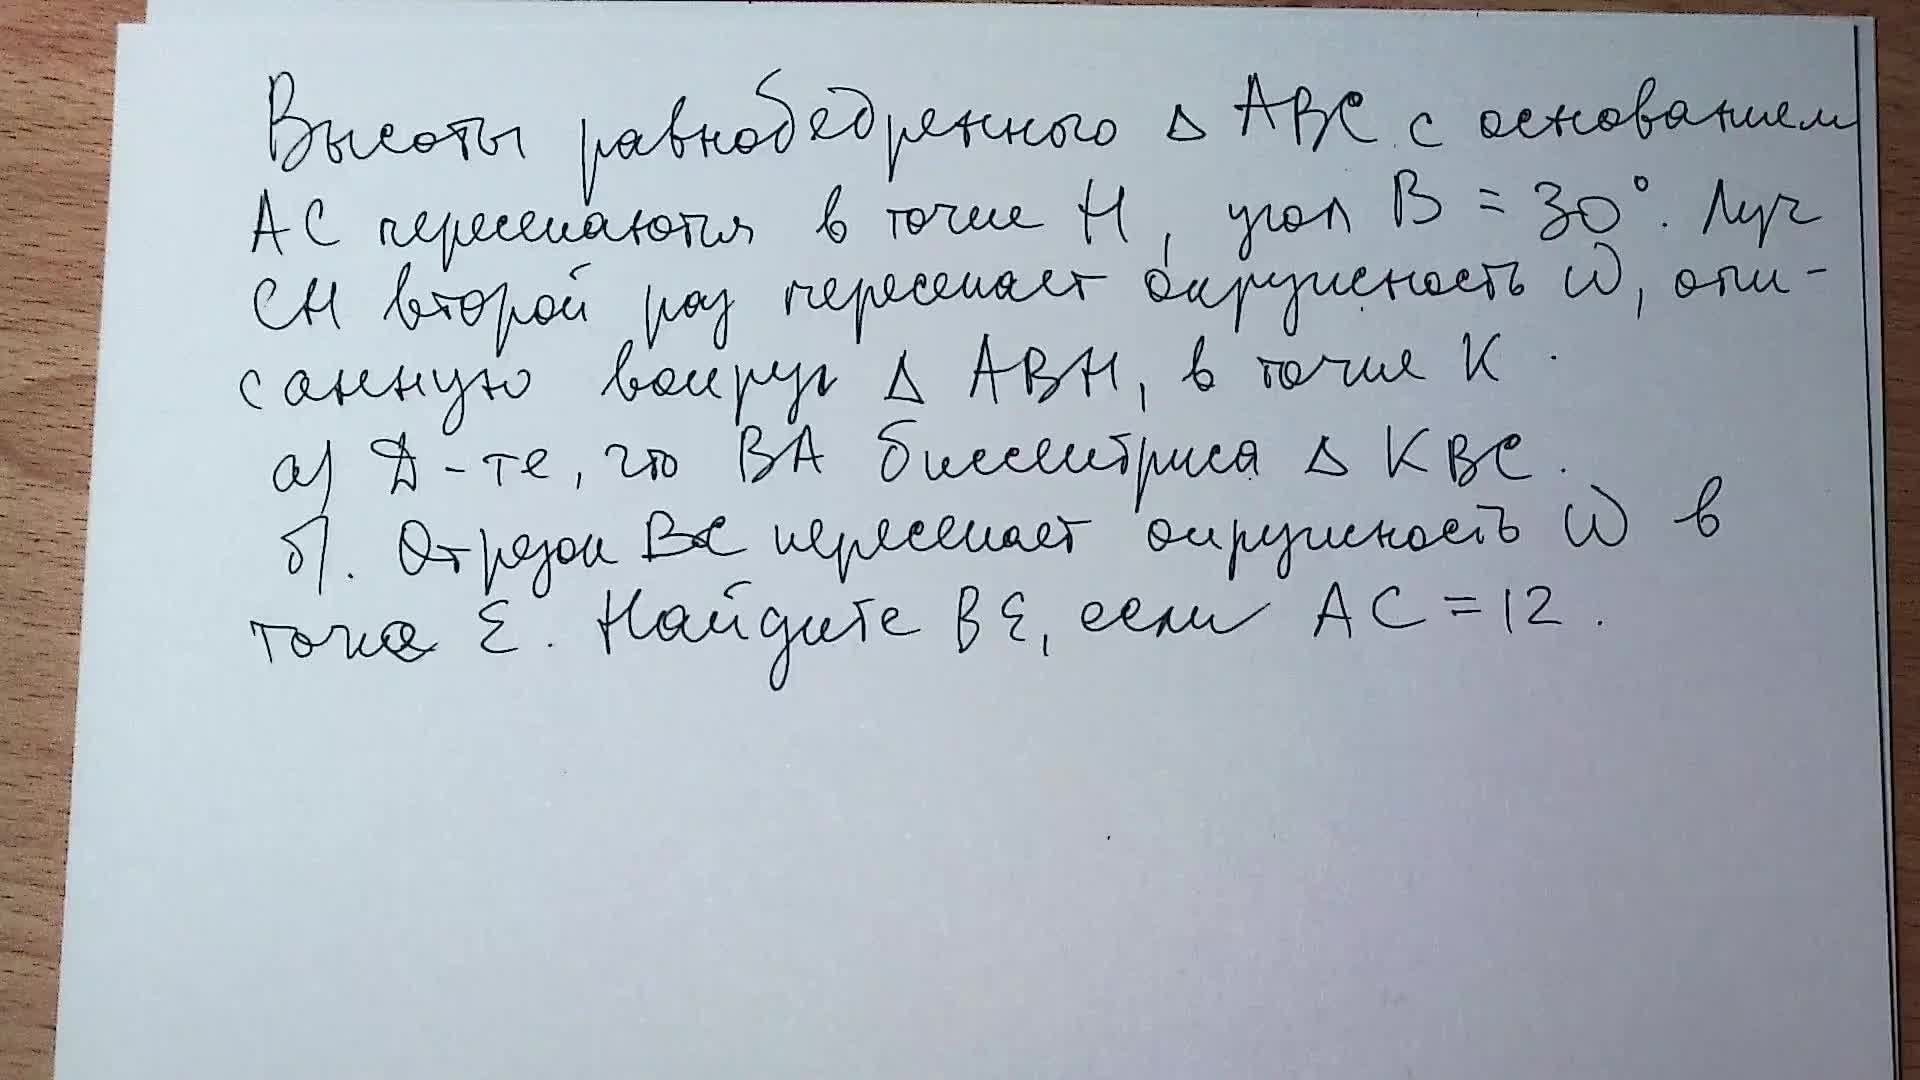 Высоты равнобедренного △ ABC с основанием
AC пересекаются в точке H, угол B = 30°. Луч
CH второй раз пересекает окружность W, опи-
санную вокруг △ ABH, в точке K.
а) Д-те, что BA биссектриса △ KBC.
б). Отрезок BC пересекает окружность W в
точке E. Найдите BE, если AC = 12.